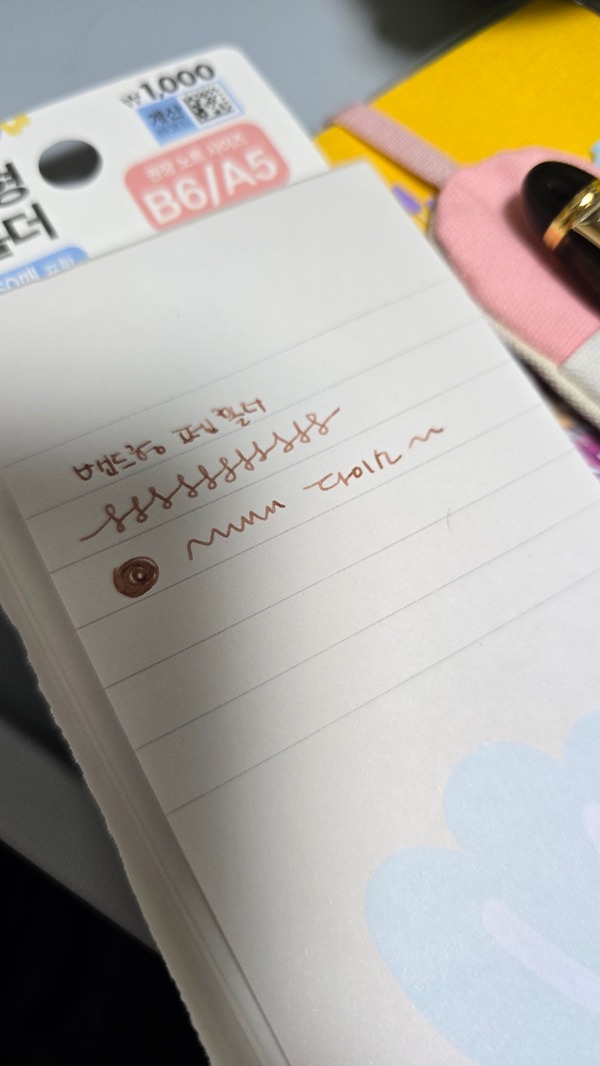 ₩1,000
갱신
권장 노트 사이즈
B6/A5
형
홀더
밴드형 펜 홀더
다이소